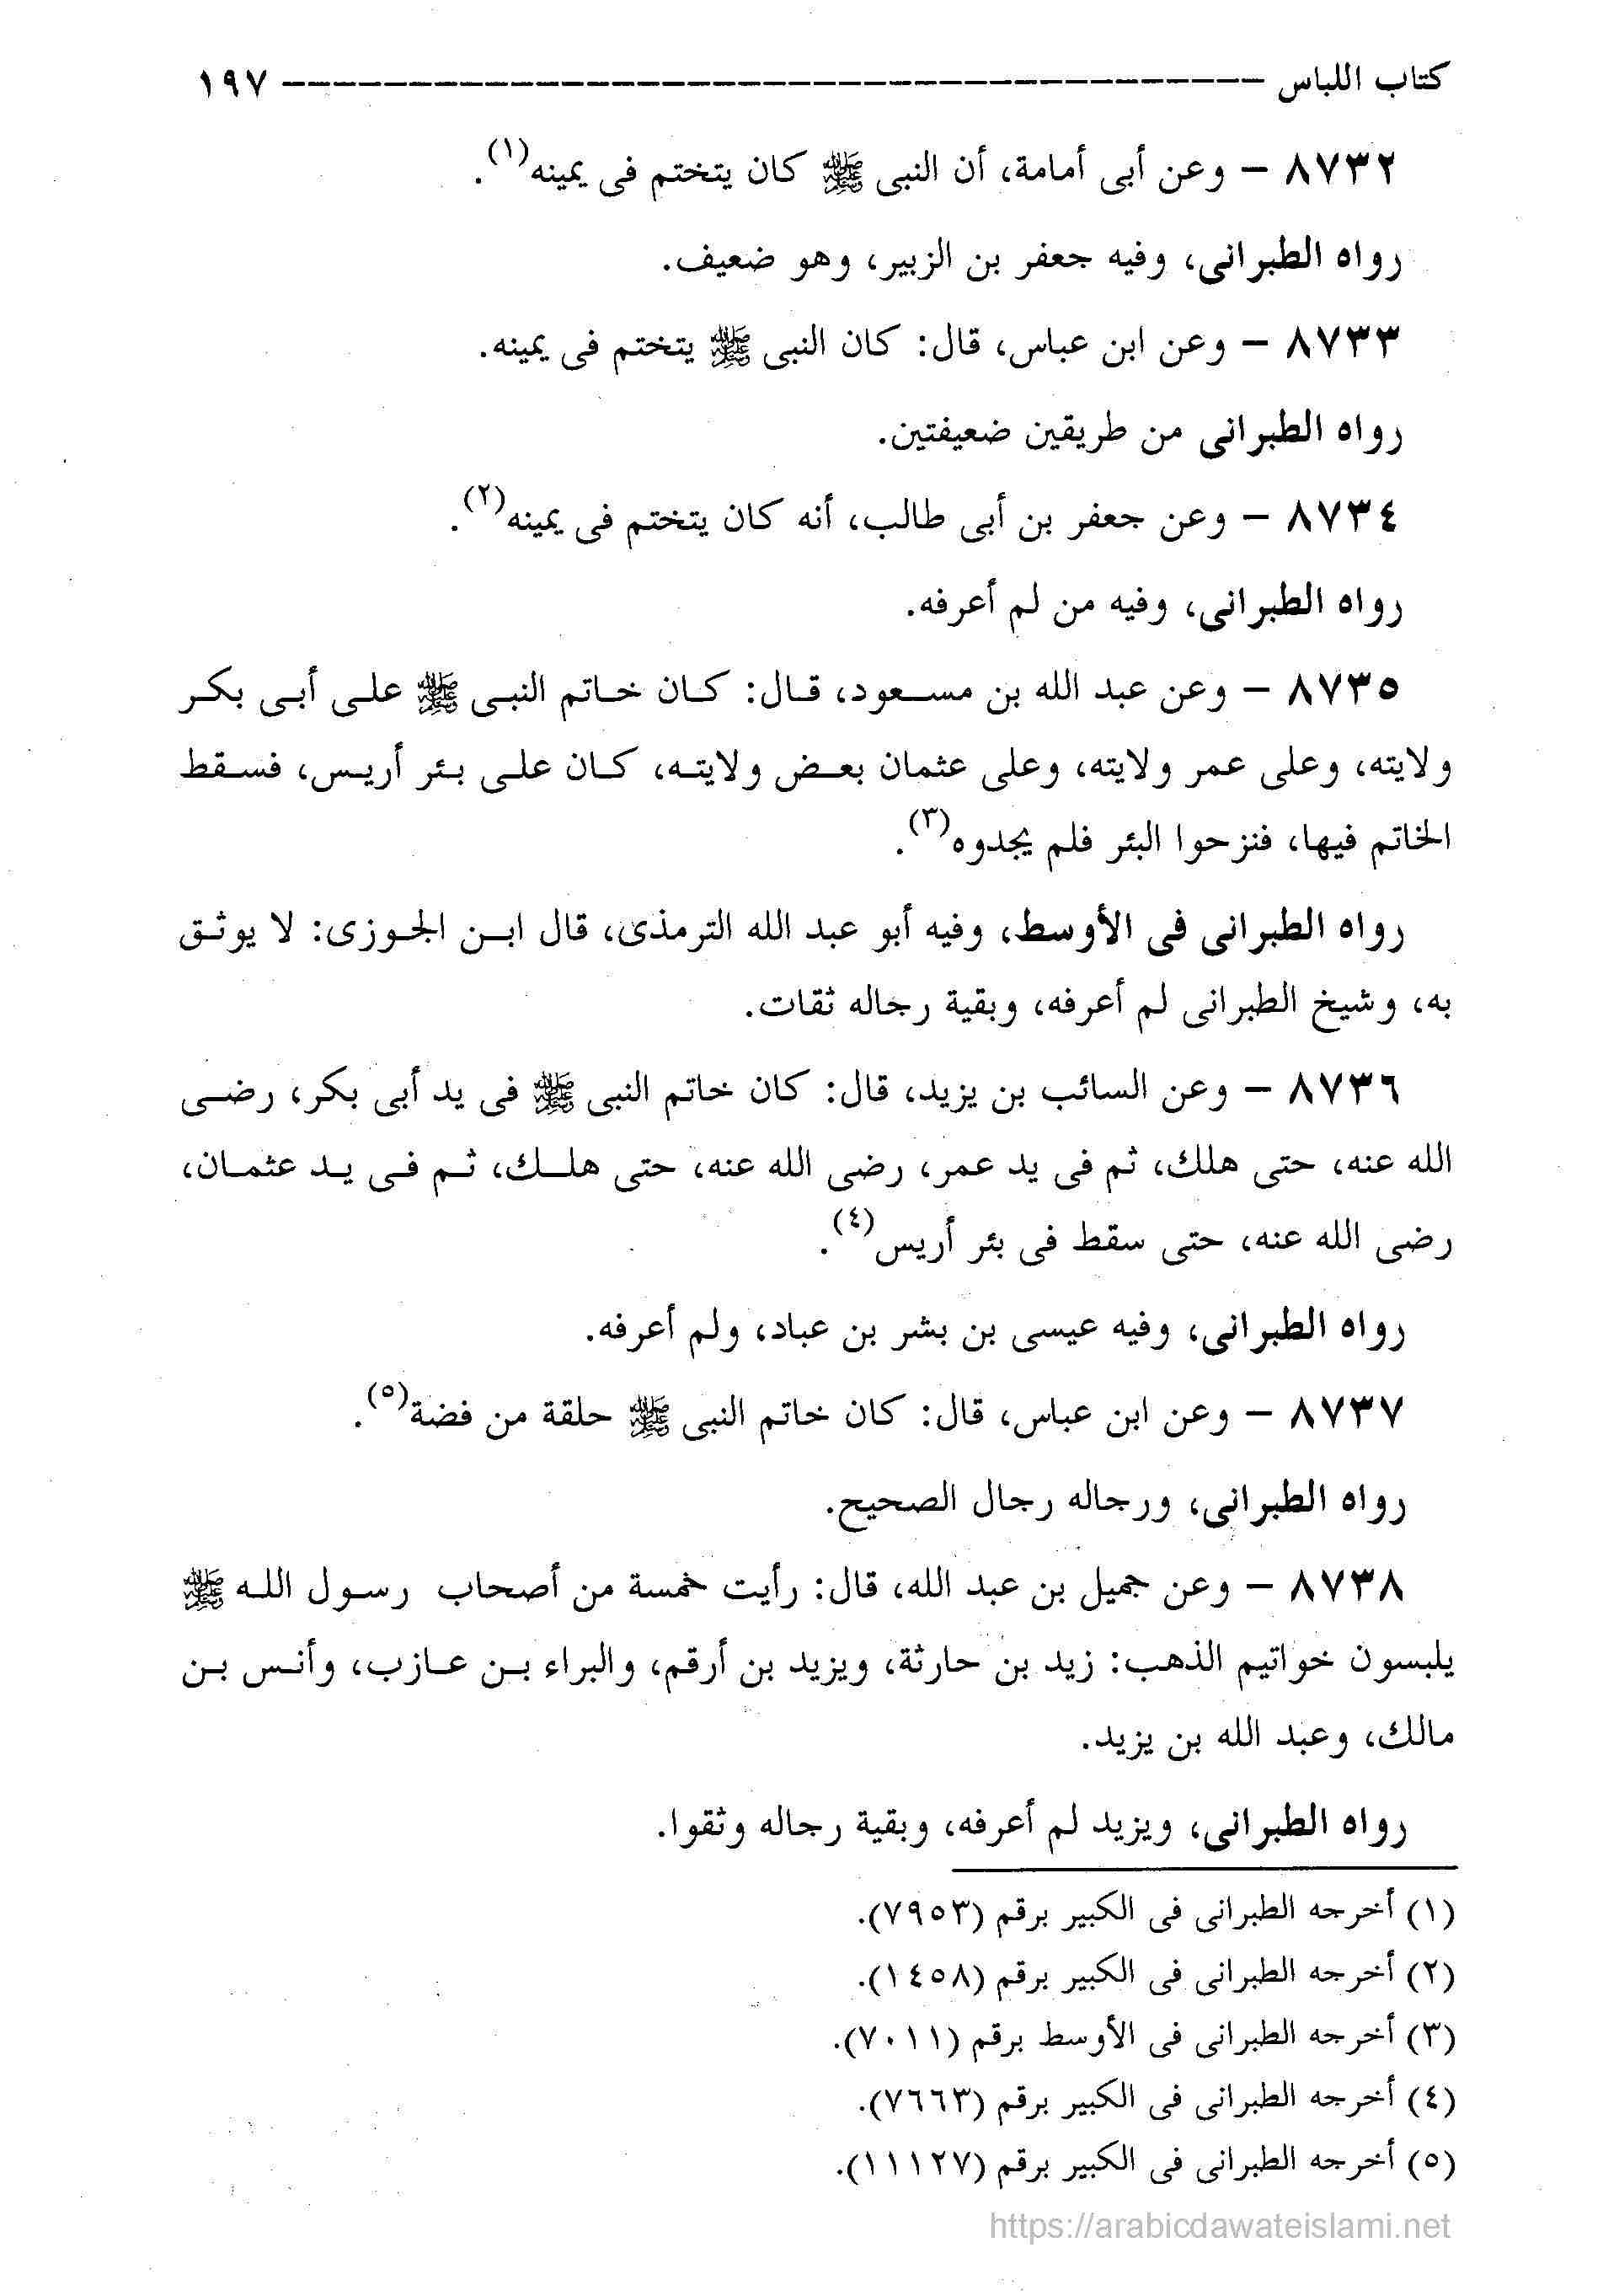 كتاب اللباس ــــــــــــــــــــــــــــــــــــــــــــــــــــــــــــــــــــــــــــ ١٩٧
٨٧٣٢ – وعن أبى أمامة، أن النبى ﷺ كان يتختم فى يمينه(١).
رواه الطبرانى، وفيه جعفر بن الزبير، وهو ضعيف.
٨٧٣٣ – وعن ابن عباس، قال: كان النبى ﷺ يتختم فى يمينه.
رواه الطبرانى من طريقين ضعيفتين.
٨٧٣٤ – وعن جعفر بن أبى طالب، أنه كان يتختم فى يمينه(٢).
رواه الطبرانى، وفيه من لم أعرفه.
٨٧٣٥ – وعن عبد الله بن مسعود، قال: كان خاتم النبى ﷺ على أبى بكر
ولايته، وعلى عمر ولايته، وعلى عثمان بعض ولايته، كان على بئر أريس، فسقط
الخاتم فيها، فنزحوا البئر فلم يجدوه(٣).
رواه الطبرانى فى الأوسط، وفيه أبو عبد الله الترمذى، قال ابن الجوزى: لا يوثق
به، وشيخ الطبرانى لم أعرفه، وبقية رجاله ثقات.
٨٧٣٦ – وعن السائب بن يزيد، قال: كان خاتم النبى ﷺ فى يد أبى بكر، رضى
الله عنه، حتى هلك، ثم فى يد عمر، رضى الله عنه، حتى هلك، ثم فى يد عثمان،
رضى الله عنه، حتى سقط فى بئر أريس(٤).
رواه الطبرانى، وفيه عيسى بن بشر بن عباد، ولم أعرفه.
٨٧٣٧ – وعن ابن عباس، قال: كان خاتم النبى ﷺ حلقة من فضة(٥).
رواه الطبرانى، ورجاله رجال الصحيح.
٨٧٣٨ – وعن جميل بن عبد الله، قال: رأيت خمسة من أصحاب رسول الله ﷺ
يلبسون خواتيم الذهب: زيد بن حارثة، ويزيد بن أرقم، والبراء بن عازب، وأنس بن
مالك، وعبد الله بن يزيد.
رواه الطبرانى، ويزيد لم أعرفه، وبقية رجاله وثقوا.
(١) أخرجه الطبرانى فى الكبير برقم (٧٩٥٣).
(٢) أخرجه الطبرانى فى الكبير برقم (١٤٥٨).
(٣) أخرجه الطبرانى فى الأوسط برقم (٧٠١١).
(٤) أخرجه الطبرانى فى الكبير برقم (٧٦٦٣).
(٥) أخرجه الطبرانى فى الكبير برقم (١١١٢٧).
https://arabicdawateislami.net